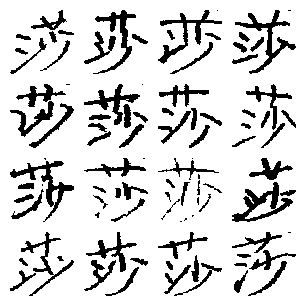 莎莎莎莎
莎莎莎莎
莎莎莎莎
莎莎莎莎